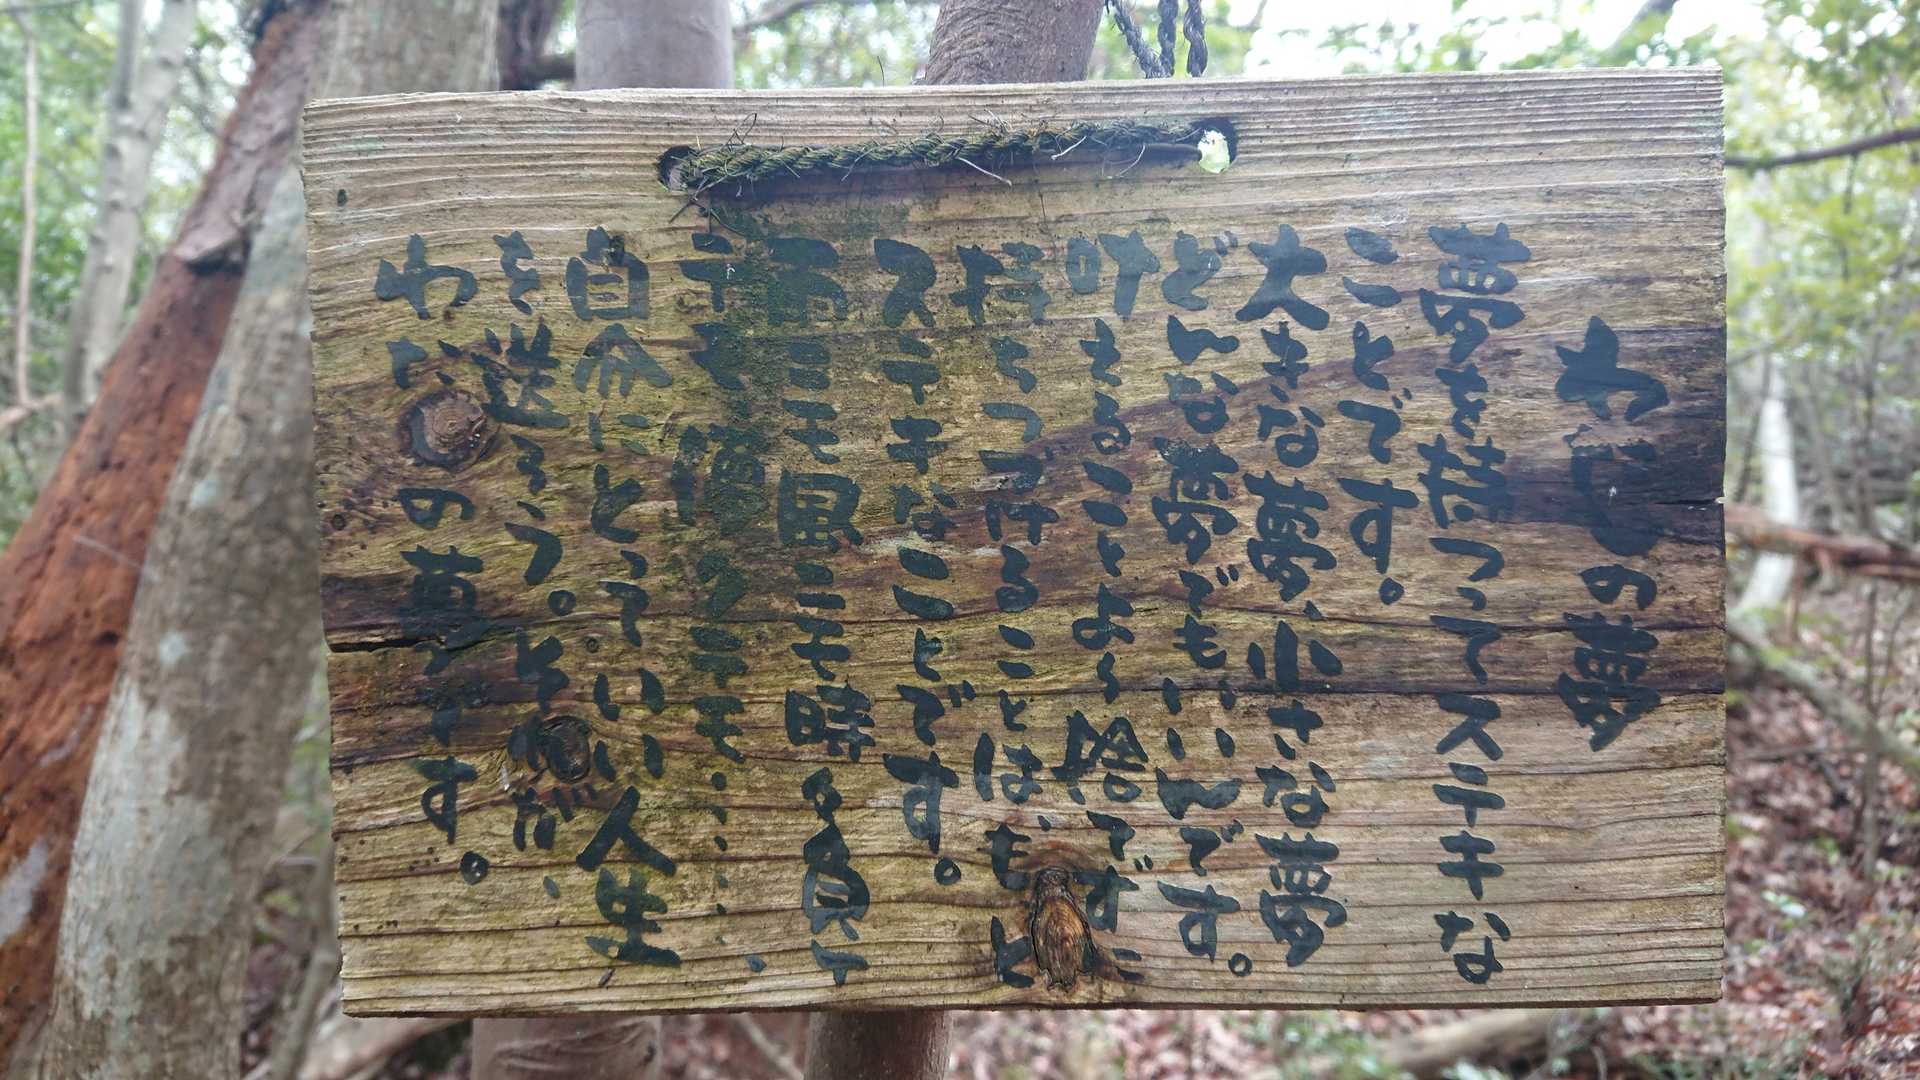 の夢
夢を持ってステキな
ことです。
大きな夢、小さな夢
どんな夢でもいいんです。
叶えることより捨てずに
持ちつづけることは、もっと
ステキなことです。
雨ニモ風ニモ時々負ケ
テモクテモ……
自分にとっていい人生
を送ろう。それが、
の夢です。